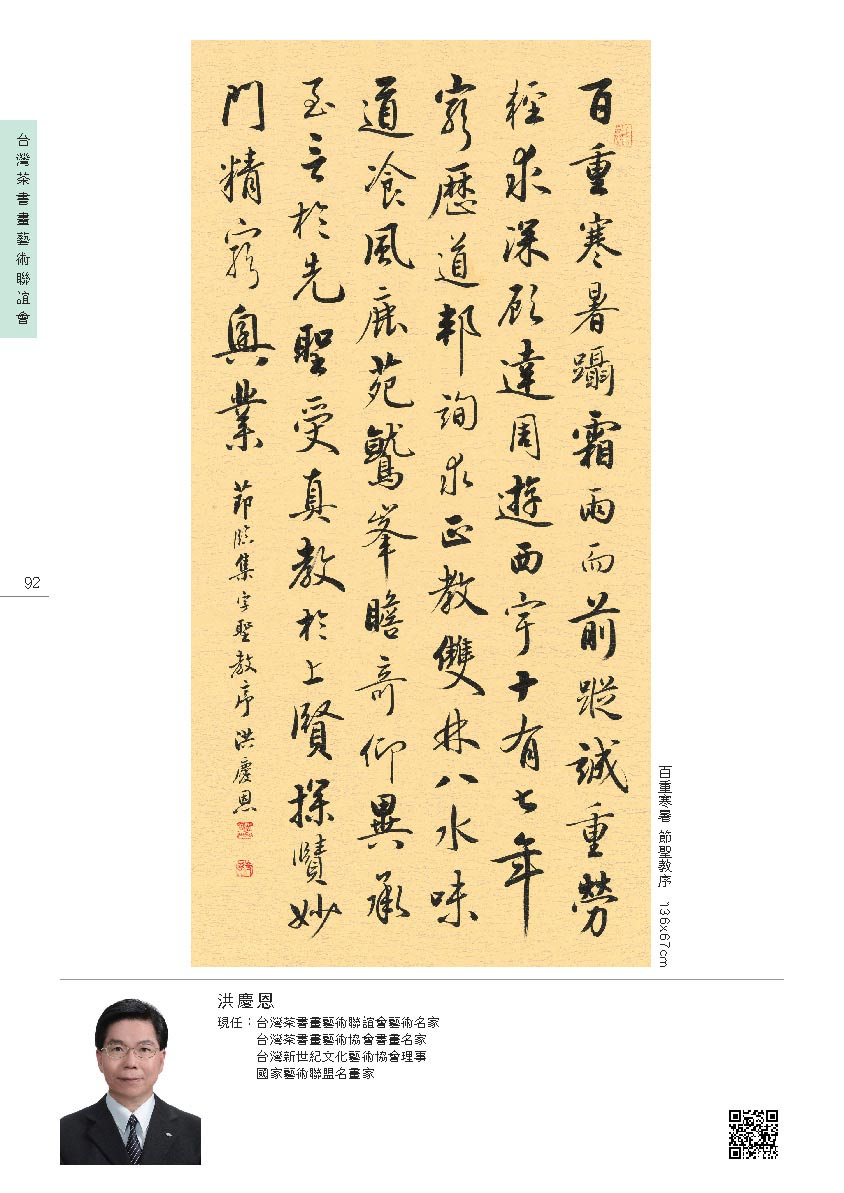 台灣茶書畫藝術聯誼會
92
百重寒暑躡霜雨而前蹤誠重勞
輕求深願達周遊西宇十有七年
窮歷道邦詢求正教雙林八水味
道飡風鹿苑鷲峯瞻奇仰異承
至言於先聖受真教於上賢探賾妙
門精窮奧業
節臨集字聖教序洪慶恩
百重寒暑 節聖教序 136x67cm
洪慶恩
現任：台灣茶書畫藝術聯誼會藝術名家
台灣茶書畫藝術協會書畫名家
台灣新世紀文化藝術協會理事
國家藝術聯盟名畫家